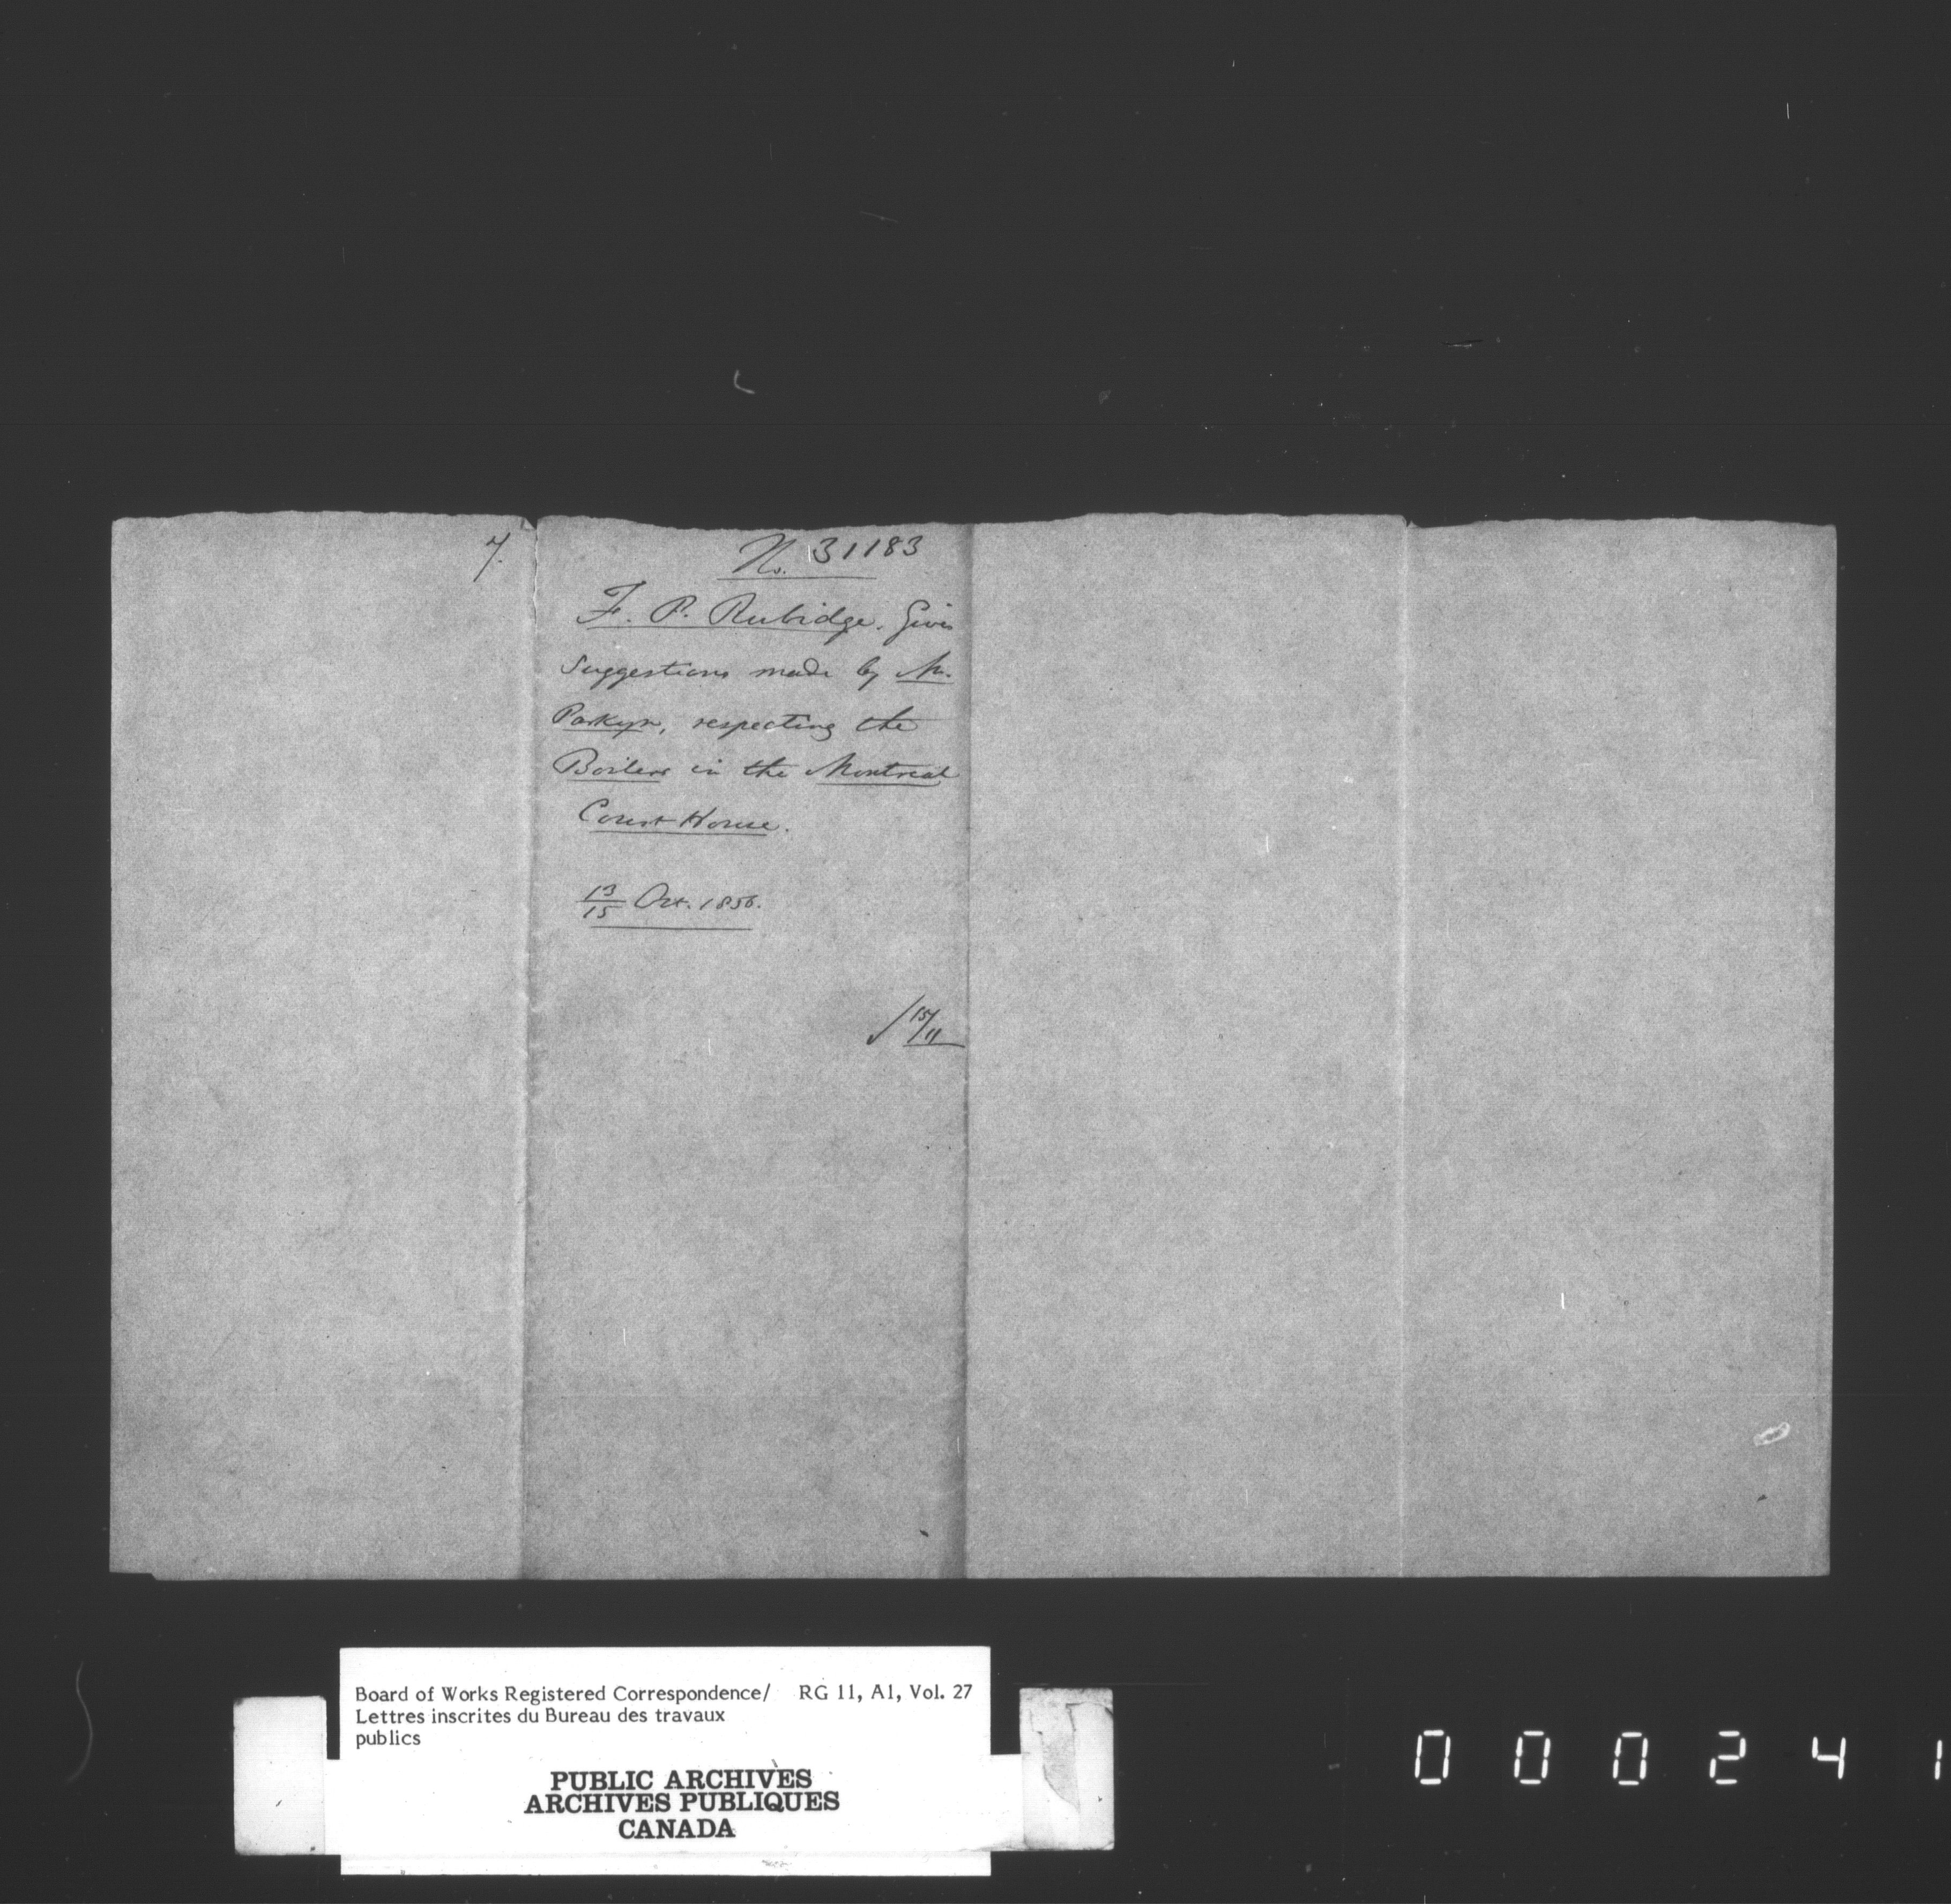 7.
No. 31183
F. P. Rubidge. Gives
Suggestions made by Mr.
Parkyn, respecting the
Boilers in the Montreal
Court House.
13/15 Oct. 1856.
15/11
Board of Works Registered Correspondence/ RG 11, A1, Vol. 27
Lettres inscrites du Bureau des travaux
publics
PUBLIC ARCHIVES
ARCHIVES PUBLIQUES
CANADA
0 0 0 2 4 1